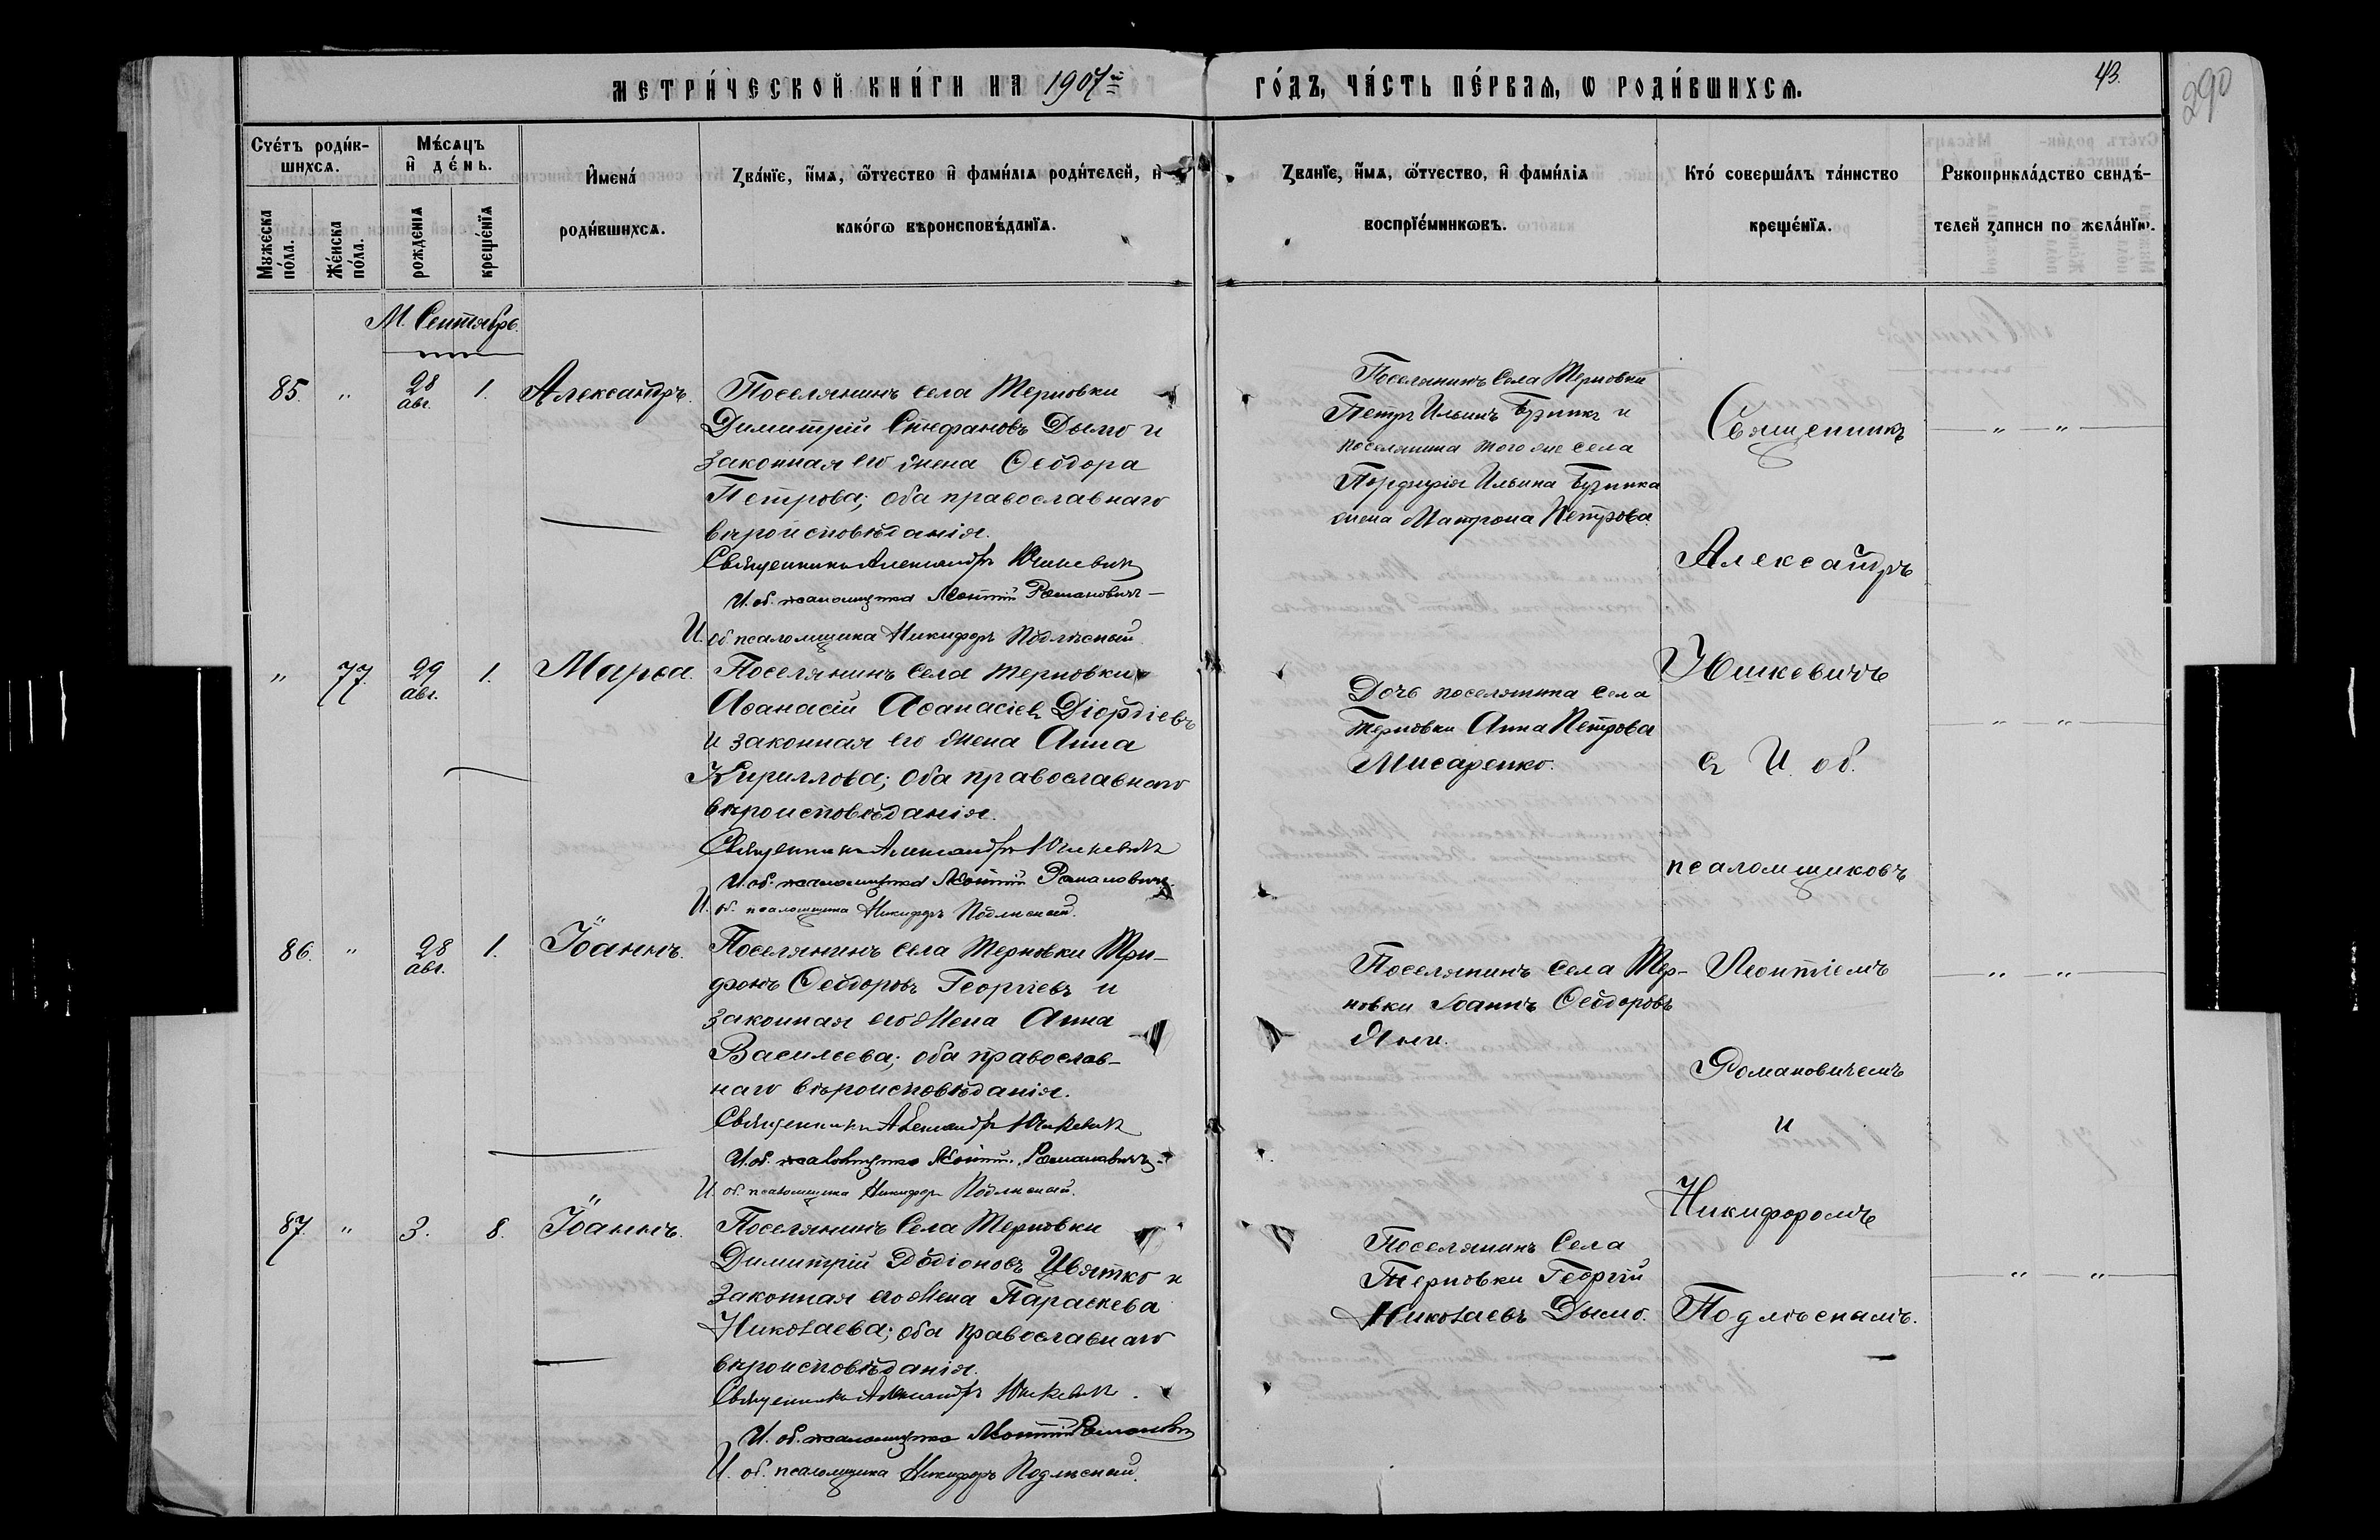 МЕТРИ́ЧЕСКОЙ КНИ́ГИ НА 1907й
ГО́ДЪ, ЧА́СТЬ ПЕ́РВАѦ, Ѡ РОДИ́ВШИХСѦ.
43.
290
Счéтъ роди́вшихсѧ.
Мꙋжеска по́ла.
Же́нска по́ла.
Мѣ́сѧцъ и де́нь.
рожденїѧ
креще́нїѧ
И҆мена́ роди́вшихсѧ.
Зва́нїе, и҆́мѧ, ѻ҆́тчество и҆ фами́лїѧ роди́телей, и҆ како́гѡ вѣроисповѣ́данїѧ.
Зва́нїе, и҆́мѧ, ѻ҆́тчество, и҆ фами́лїѧ воспрїе́мникѡвъ.
Кто́ соверша́лъ та́инство креще́нїѧ.
Рꙋкоприкла́дство свидѣ́телей записи по жела́нїю.
М. Сентябрь.
85. " 28 авг. 1. Александръ.
Поселянинъ села Терновки
Димитрій Стефановъ Дымо и
законная его жена Ѳеодора
Петрова; оба православнаго
вѣроисповѣданія.
Священникъ Александръ Юшкевичъ
И. об. псаломщика Леонтій Романовичъ
И. об псаломщика Никифоръ Подлѣсный.
Поселянинъ села Терновки
Петръ Ильинъ Бузинка и
поселянина того же села
Порфирія Ильина Бузинка
жена Матрона Петрова.
" 77. 29 авг. 1. Марѳа.
Поселянинъ села Терновки
Аѳанасій Аѳанасіевъ Діордіевъ
и законная его жена Анна
Кириллова; оба православнаго
вѣроисповѣданія.
Священникъ Александръ Юшкевичъ
И. об. псаломщика Леонтій Романовичъ.
И. об. псаломщика Никифоръ Подлѣсный.
Дочь поселянина села
Терновки Анна Петрова
Мисаренко.
86. " 28 авг. 1. Іоаннъ.
Поселянинъ села Терновки Три-
фонъ Ѳеодоровъ Георгіевъ и
законная его жена Анна
Васильева; оба православ-
наго вѣроисповѣданія.
Священникъ Александръ Юшкевичъ
И. об. псаломщика Леонтій Романовичъ
И. об. псаломщика Никифоръ Подлѣсный.
Поселянинъ села Тер-
новки Іоаннъ Ѳеодоровъ
87. " 3. 8. Іоаннъ.
Поселянинъ села Терновки
Димитрій Родіоновъ Цвятко и
законная его жена Параскева
Николаева; оба православнаго
вѣроисповѣданія.
Священникъ Александръ Юшкевичъ.
И. об. псаломщика Леонтій Романовичъ
И. об. псаломщика Никифоръ Подлѣсный.
Поселянинъ села
Терновки Георгій
Николаевъ Дымо.
Священникъ
Александръ
Юшкевичъ
съ И. об.
псаломщиковъ
Леонтіемъ
Романовичемъ
и
Никифоромъ
Подлѣснымъ.